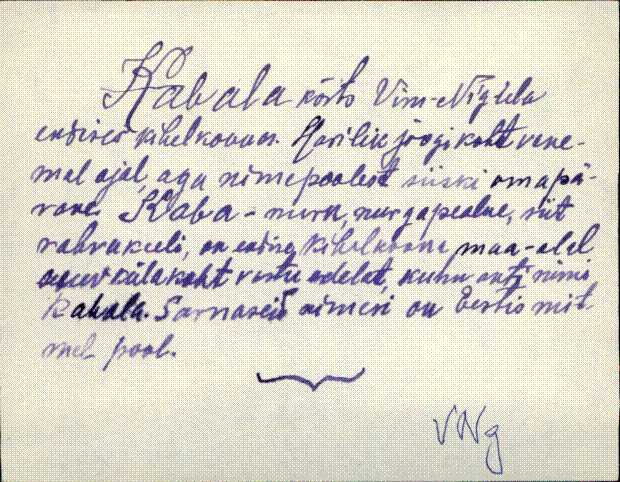 Kabala kõrts Viru-Nigula
endises kihelkonnas. Harilik joogikoht vane-
mal ajal, aga nimepoolest siiski omapä-
rane. Kaba - nurk, nurgapealne, siit
rahvakeeli, on endise kihelkonna maa-alal
külakoht vastu edelat, kuhu anti nimi
Kabala. Sarnaseid nimesi on Eestis mit-
mel pool.
VNg